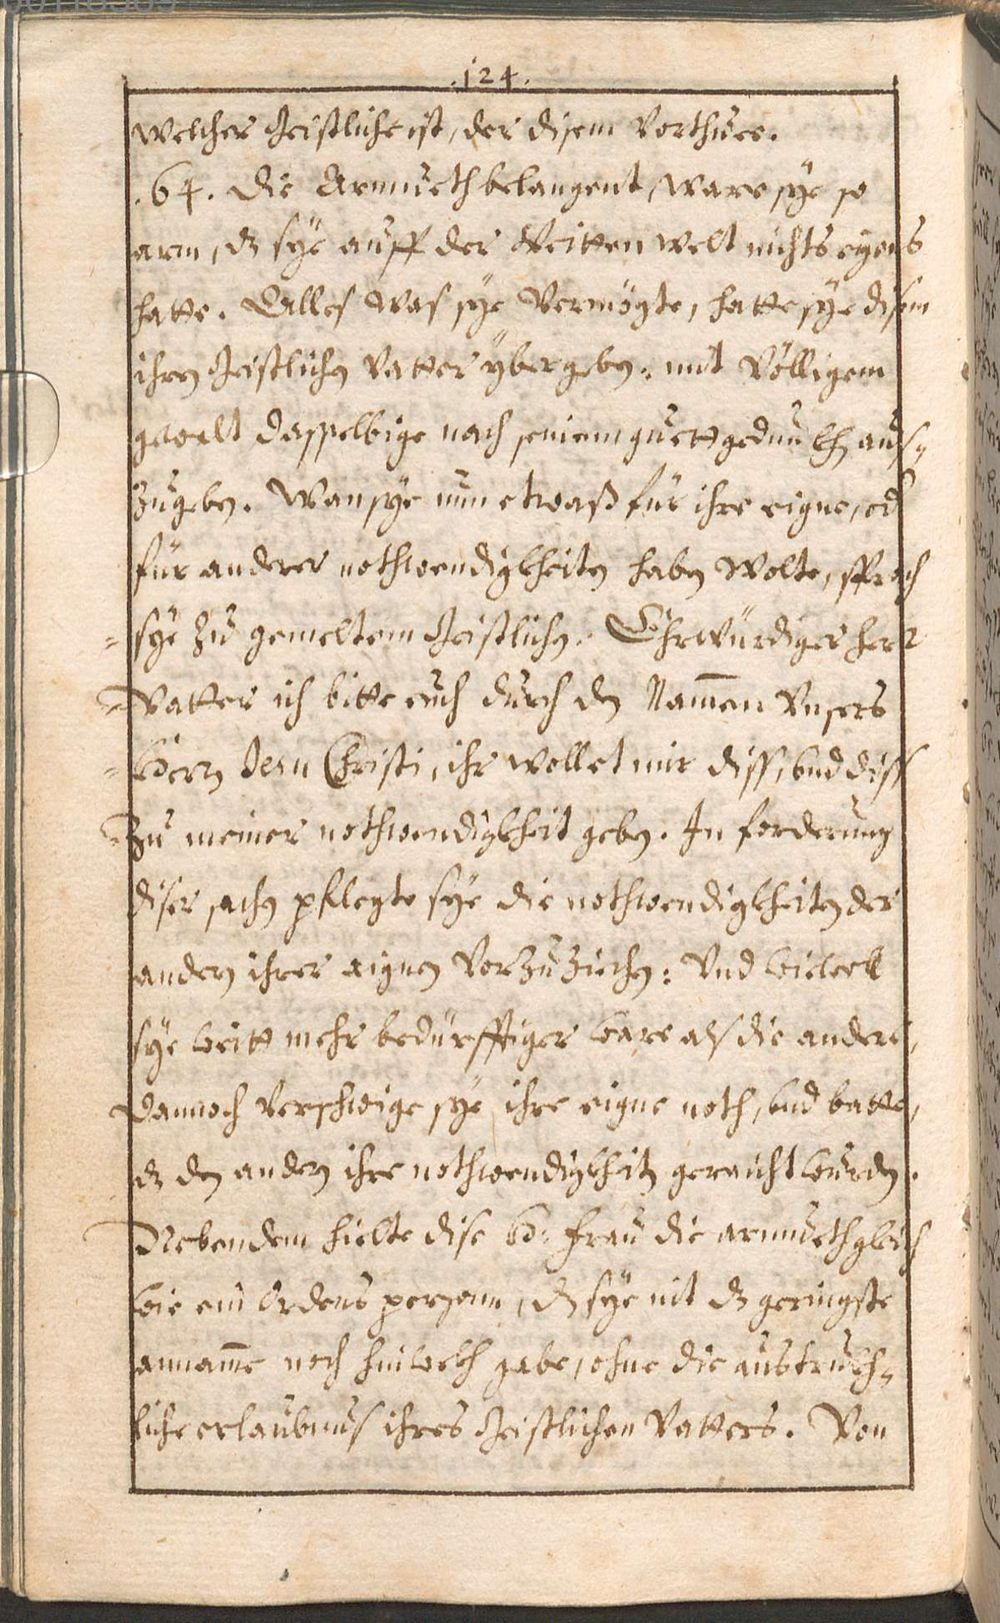 .124.
welcher Geistliche ist, der disem Vorthuee.
.64. Die Armueth belangent, ware sye so
arm, dz sye auff der Weitten welt nichts eigens
hatte. Alles was sye Vermögte, hatte sye disem
ihren Geistlichen Vatter ybergeben: mit Völligem
gewalt dasselbige nach seinem guettgeduncken aus-
zugeben. Wan sye nun etwaß für ihre eigne, oder
für anderer nothwendigkheiten haben wolte, sprach
= sye zu gemeltem Geistlichen. Ehrwürdiger herr
= Vatter ich bitte euch durch den Nam̄en Vnsers
= Herrn Jesu Christi, ihr wollet mir diss, vnd diss
= Zu meiner nothwendigkheit geben. In forderung
diser sachen pflegte sye die nothwendigkheiten der
andern ihrer aignen Vorzuziechen: Vnd wiewoll
sye weitt mehr bedürfftiger ware als die andere,
dannoch Verschwige sye ihre eigne noth, vnd batte,
dz den andern ihre nothwendigkheiten geraicht wurden.
Neben dem hielte dise H: frau die armueth gleich
wie ein Ordens person, dz sye nit dz geringste
annam̄e noch hinwekh gabe, ohne die austrukh-
liche erlaubnus ihres Geistlichen Vatters. Von